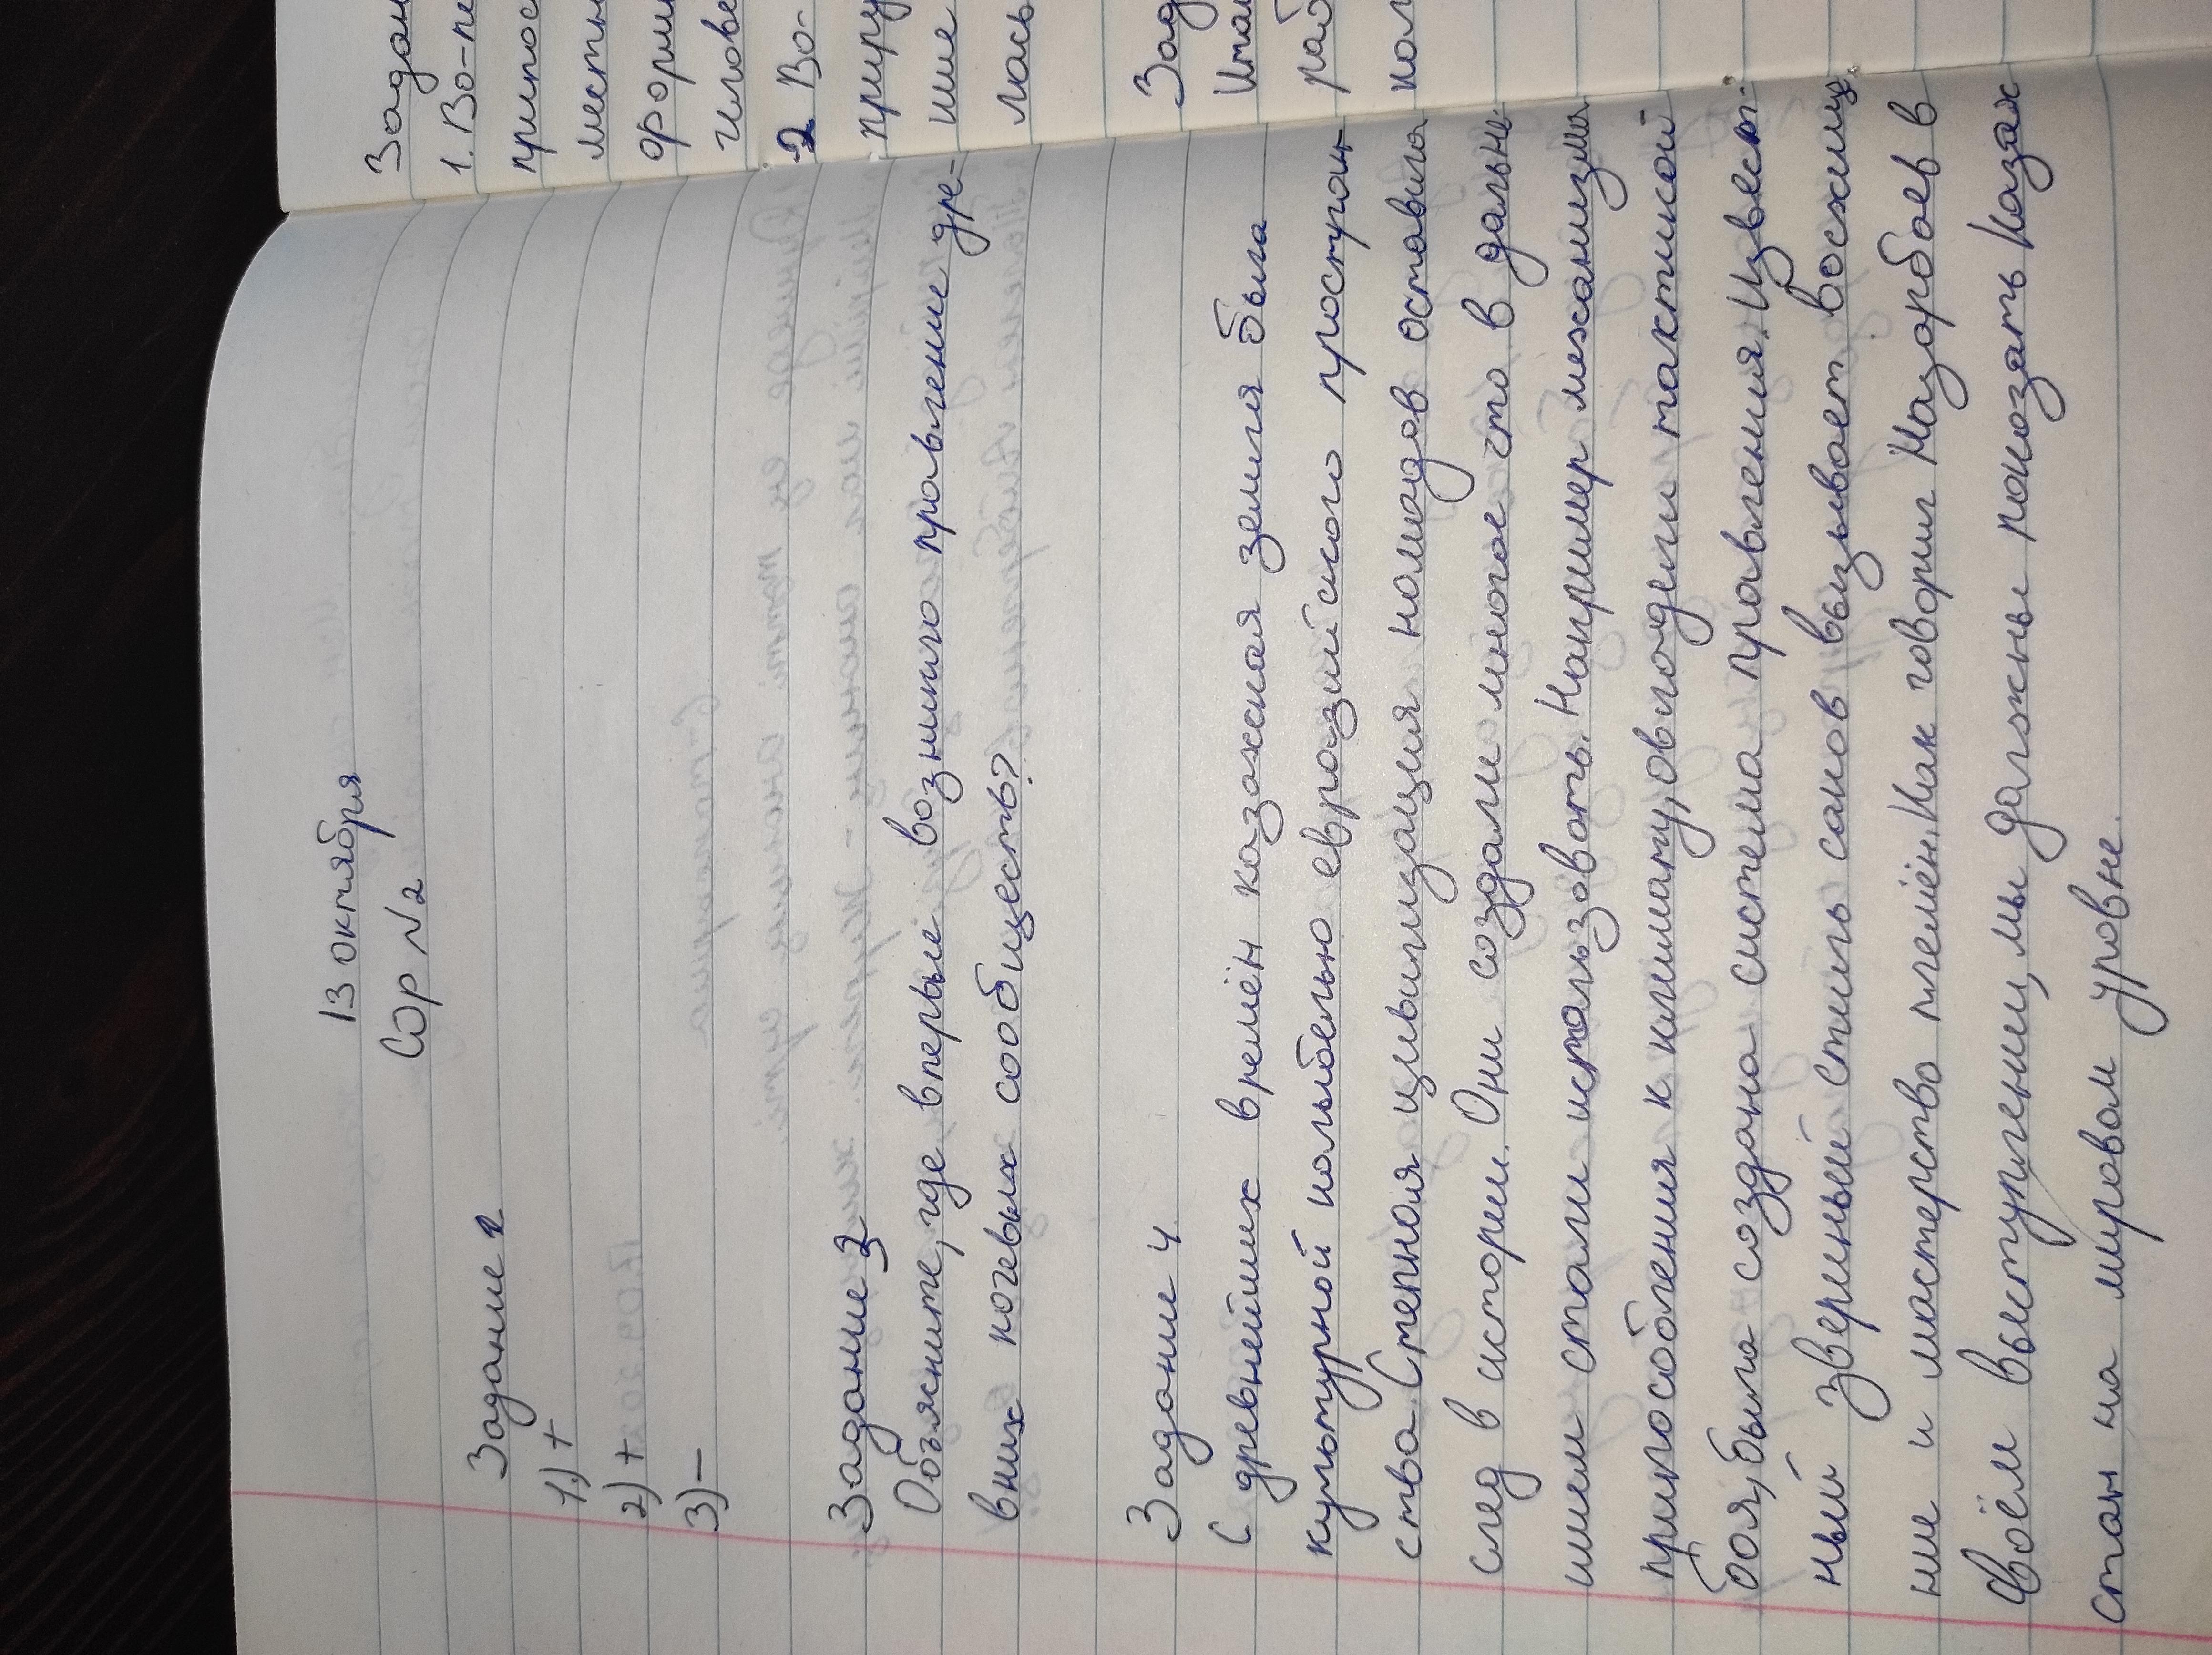 13 октября
Сор №2
Задание 2
1) +
2) +
3) –
Задание 3
Объясните, где впервые возникло правление дре-
вних кочевых сообществ?
Задание 4
С древнейших времён казахская земля была
культурной колыбелью евразийского простран
ства. Степная цивилизация номадов оставила
след в истории. Они создали многое что в дальне
ишем стали использовать. Например механизмы
приспособления к климату, овладели тактикой
боя, была создана система правления. Извест-
ный звериный стиль саков вызывает восхище
ние и мастерство племён. Как говорил Назарбаев в
своём выступлении, мы должны показать Казах
стан на мировом уровне.
Задан
1. Во-пе
приспос
местн
форми
челове
2. Во-
прируч
шие
лась
Зад
Итак
рай
кол